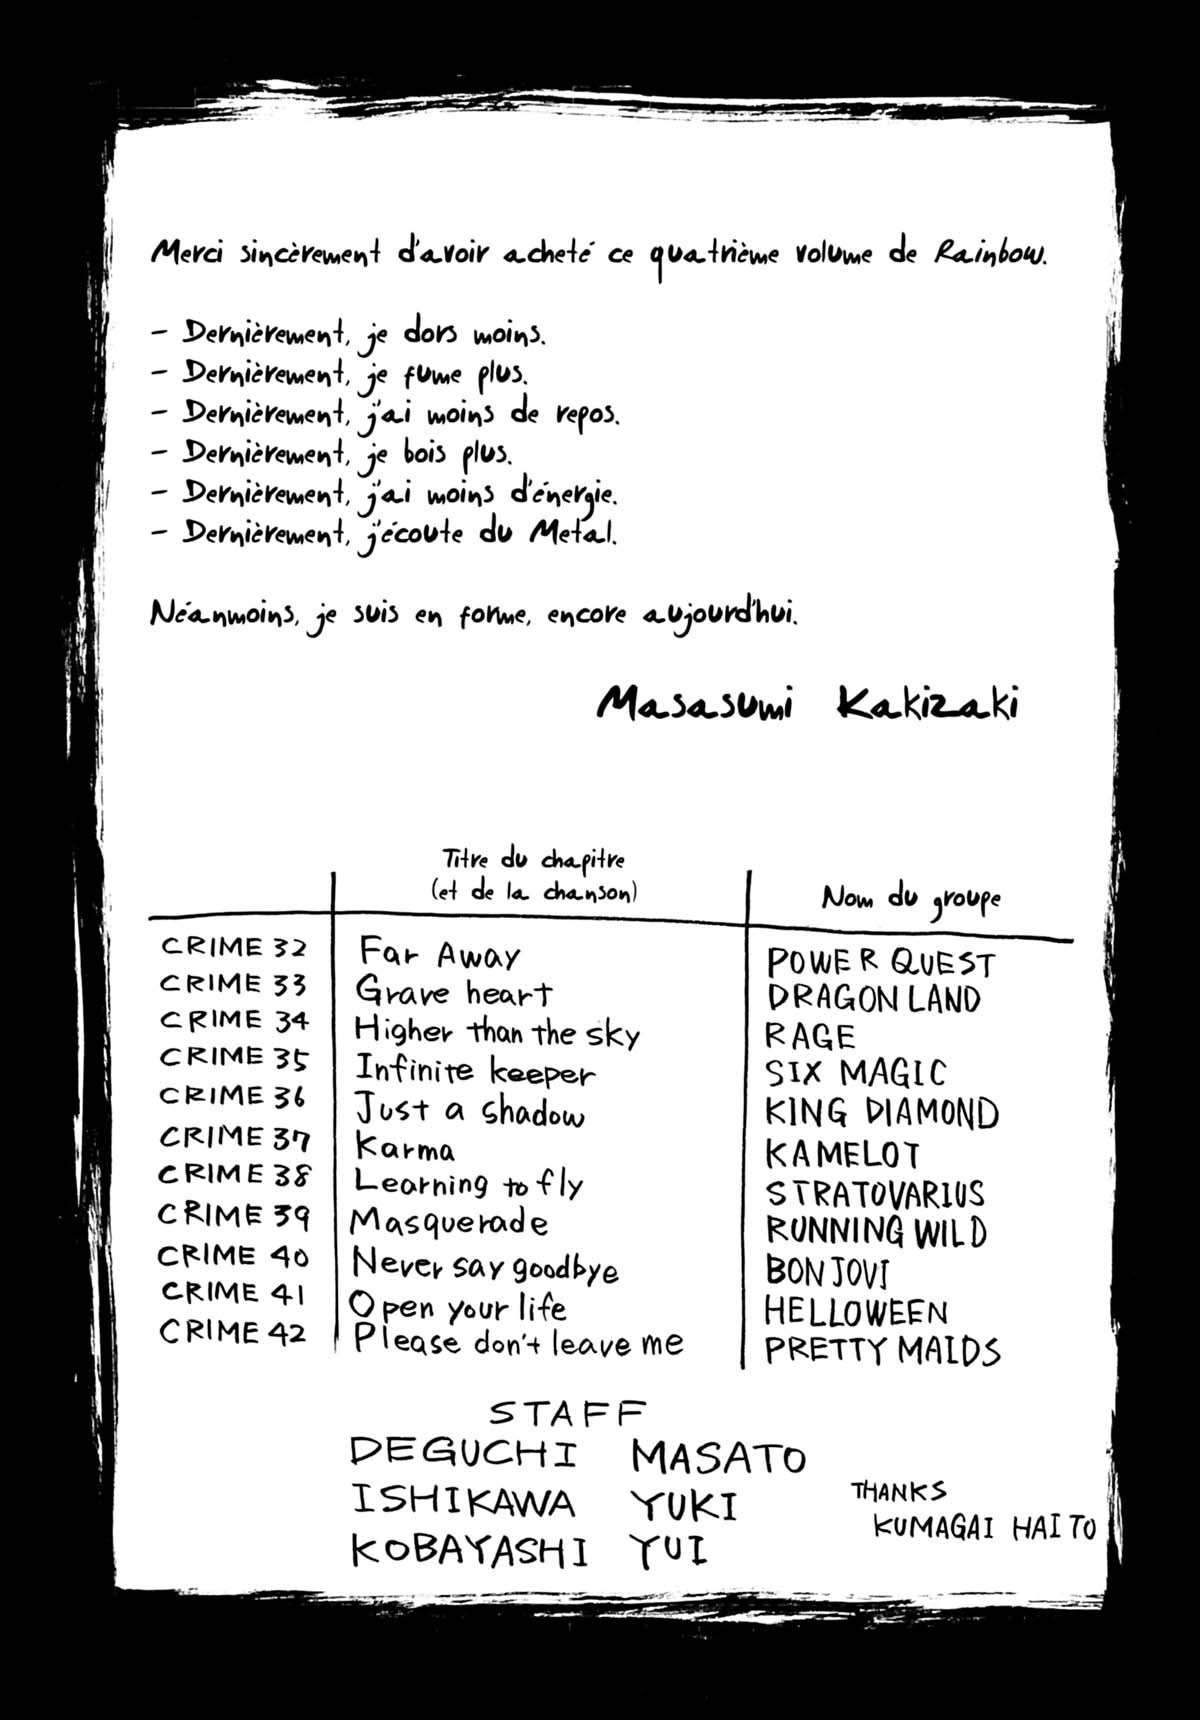 Merci sincèrement d'avoir acheté ce quatrième volume de Rainbow.
- Dernièrement, je dors moins.
- Dernièrement, je fume plus.
- Dernièrement, j'ai moins de repos.
- Dernièrement, je bois plus.
- Dernièrement, j'ai moins d'énergie.
- Dernièrement, j'écoute du Metal.
Néanmoins, je suis en forme, encore aujourd'hui.
Masasumi Kakizaki
Titre du chapitre
(et de la chanson)
Nom du groupe
CRIME 32 Far Away POWER QUEST
CRIME 33 Grave heart DRAGON LAND
CRIME 34 Higher than the sky RAGE
CRIME 35 Infinite keeper SIX MAGIC
CRIME 36 Just a shadow KING DIAMOND
CRIME 37 Karma KAMELOT
CRIME 38 Learning to fly STRATOVARIUS
CRIME 39 Masquerade RUNNING WILD
CRIME 40 Never say goodbye BON JOVI
CRIME 41 Open your life HELLOWEEN
CRIME 42 Please don't leave me PRETTY MAIDS
STAFF
DEGUCHI MASATO
ISHIKAWA YUKI
KOBAYASHI YUI
THANKS
KUMAGAI HAITO